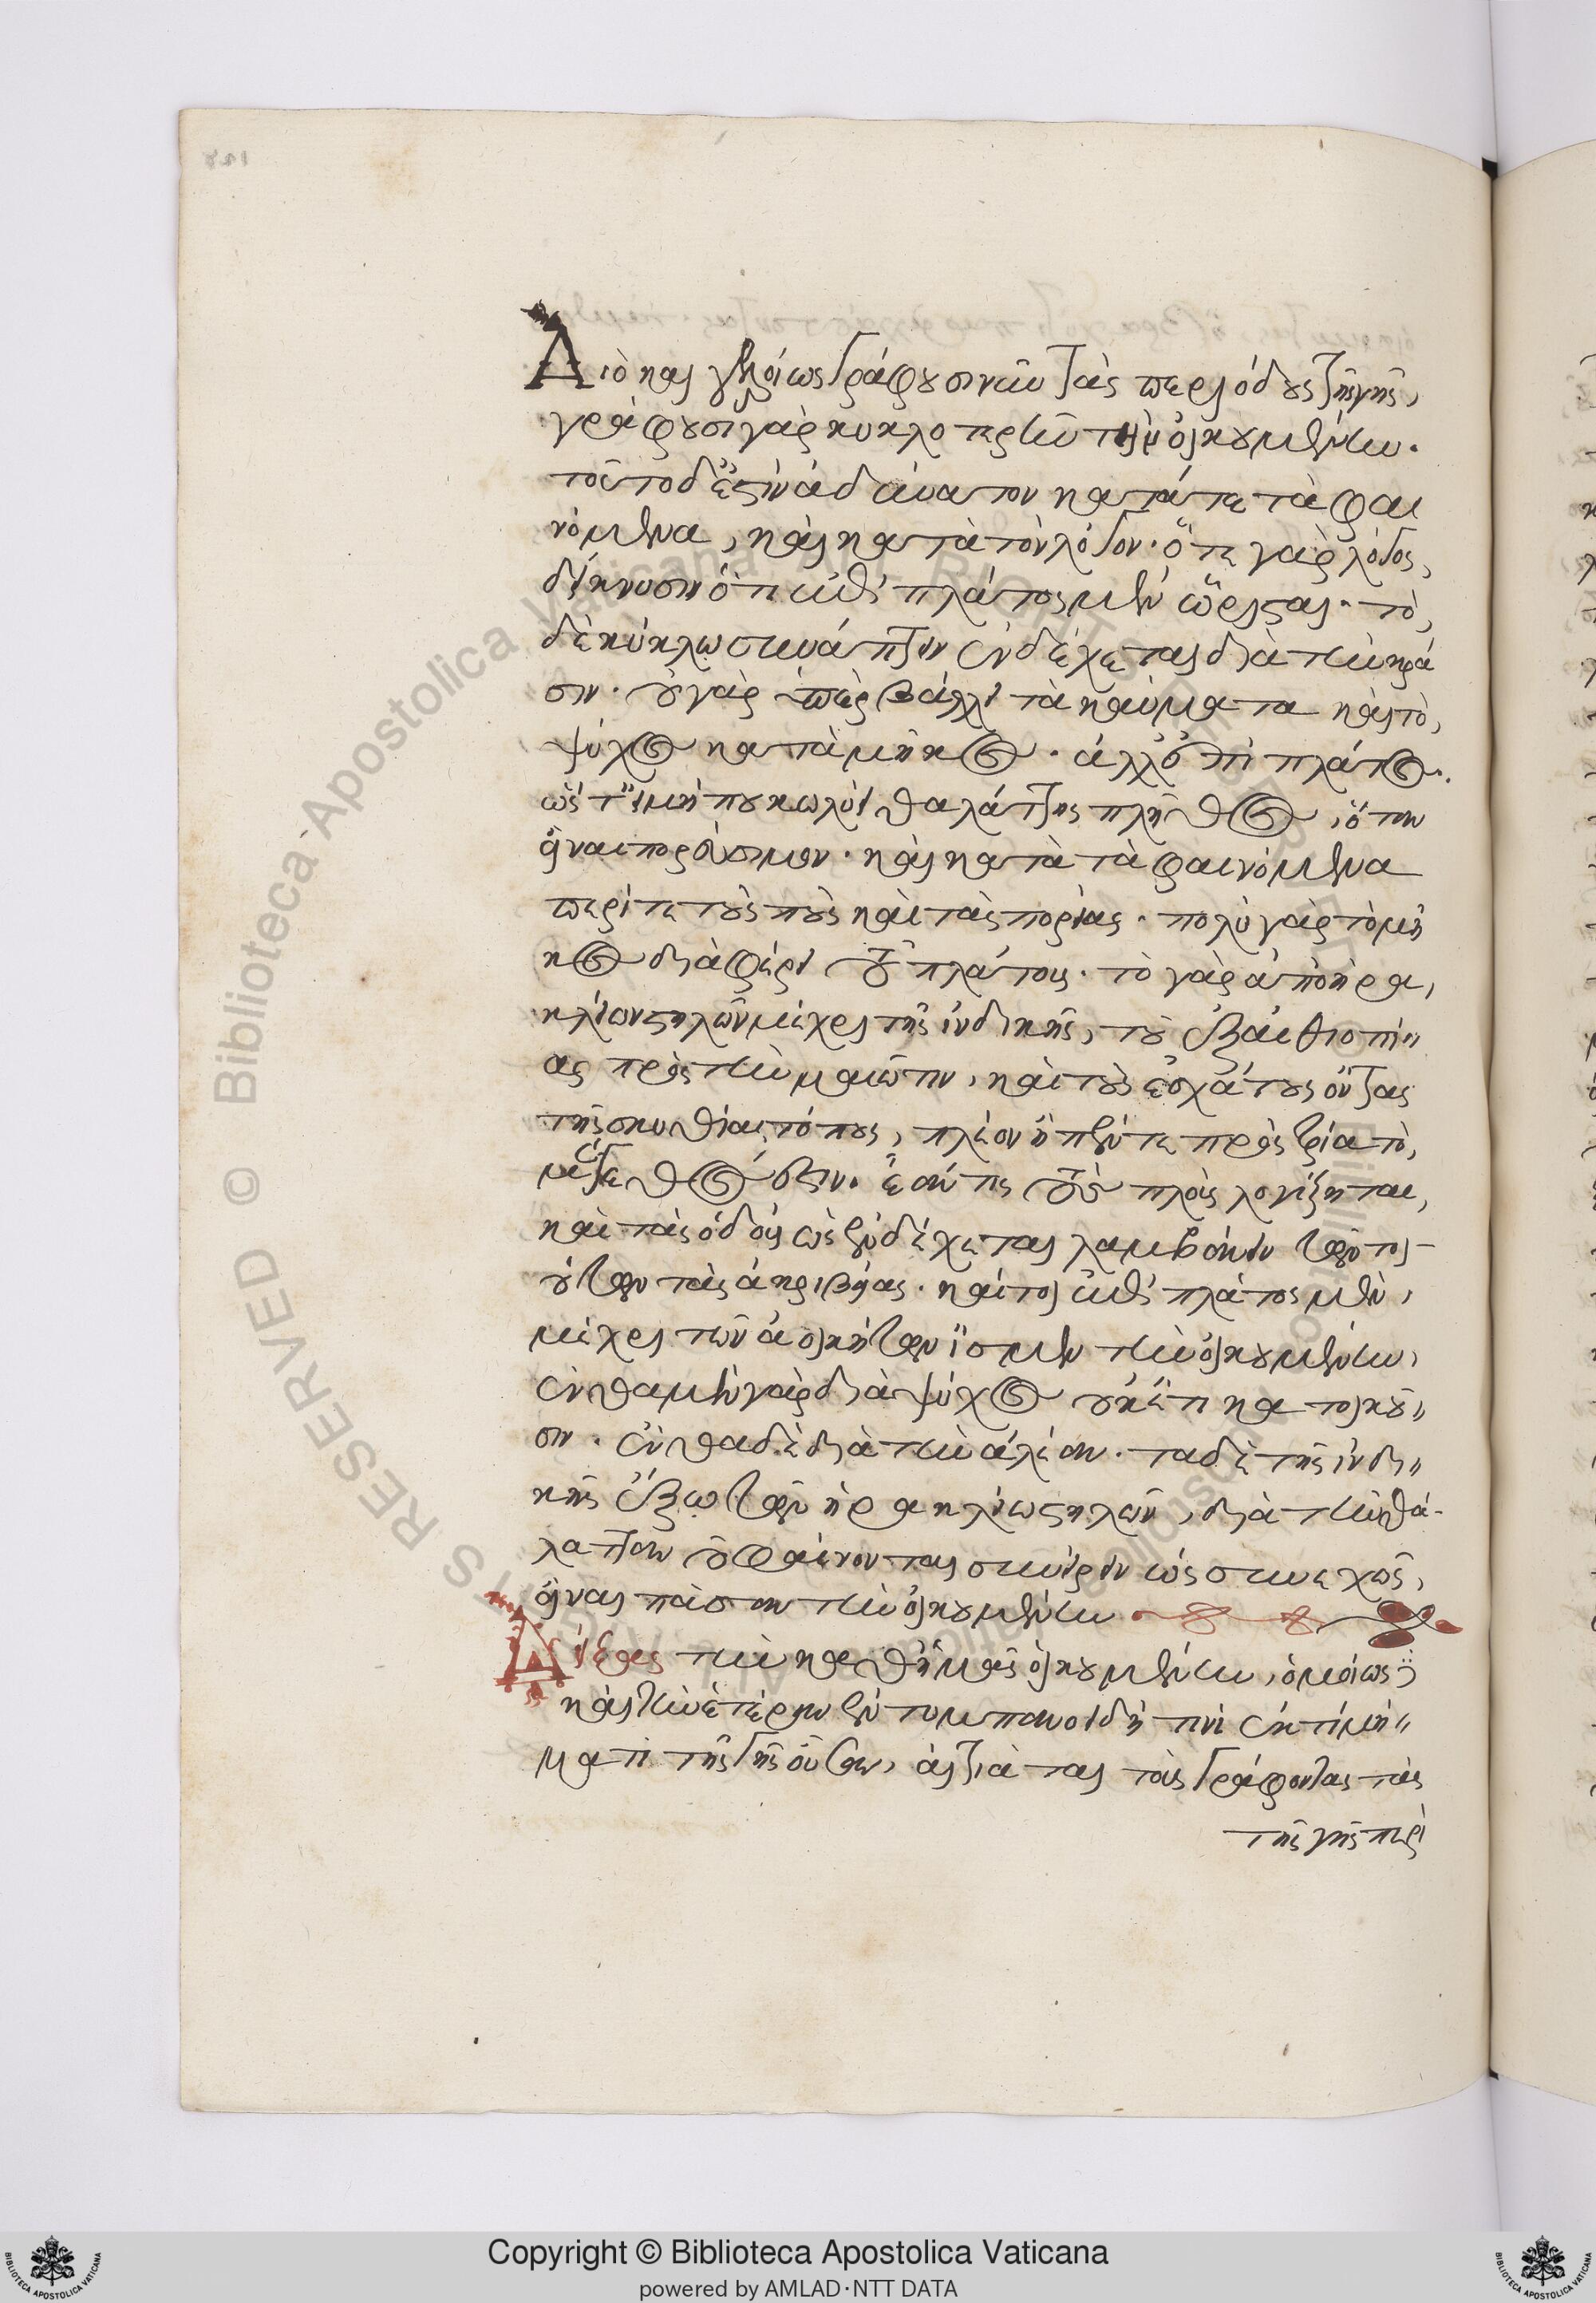 Διὸ καὶ γελοίως γράφουσι νῦν τὰς περιόδους τῆς γῆς,
γράφουσι γὰρ κυκλοτερῆ τὴν οἰκουμένην.
τοῦτο δ' ἐστὶν ἀδύνατον κατά τε τὰ φαι
νόμενα, καὶ κατὰ τὸν λόγον. ὅ τε γὰρ λόγος,
δείκνυσιν ὅτι ἐπὶ πλάτος μὲν ὥρισται. τὸ,
δὲ κύκλῳ συνάπτειν ἐνδέχεται διὰ τὴν κρά
σιν. οὐ γὰρ ὑπερβάλλει τὰ καύματα καὶ τὸ,
ψύχος κατὰ μῆκος. ἀλλ' ἐπὶ πλάτος.
ὥστ' εἰ μή που κωλύει θαλάττης πλῆθος, ἅπαν
εἶναι πορεύσιμον. καὶ κατὰ τὰ φαινόμενα
περί τε τοὺς πλοῦς καὶ τὰς πορείας. πολὺ γὰρ τὸ μῆ
κος διαφέρει τοῦ πλάτους. τὸ γὰρ ἀπὸ ἡρα,
κλείων στηλῶν μέχρι τῆς ἰνδικῆς, τοῦ ἐξ αἰθιοπί
ας πρὸς τὴν μαιῶτιν, καὶ τοὺς ἐσχάτους ὄντας
τῆς σκυθίας τόπους, πλέον ἢ πέντε πρὸς τρία τὸ,
μέγεθός ἐστιν. ἐάν τις τούς τε πλοῦς λογίζηται,
καὶ τὰς ὁδοὺς ὡς ἐνδέχεται λαμβάνειν τῶν τοι
ούτων τὰς ἀκριβείας. καίτοι ἐπὶ πλάτος μὲν,
μέχρι τῶν ἀοικήτων ἴσμεν τὴν οἰκουμένην,
ἔνθα μὲν γὰρ διὰ ψύχος οὐκέτι κατοικοῦ
σιν. ἔνθα δὲ διὰ τὴν ἀλέαν. τὰ δὲ τῆς ἰνδι
κῆς ἔξω καὶ τῶν ἡρακλείων στηλῶν, διὰ τὴν θά
λατταν οὐ φαίνονται συνείρειν ὡς συνεχῶς,
εἶναι πᾶσαν τὴν οἰκουμένην.
Δείξας τὴν καθ' ἡμᾶς οἰκουμένην, ὁμοίως
καὶ τὴν ἑτέραν ἐν τυμπανοειδεῖ τινι ἐκτμή
ματι τῆς γῆς οὖσαν, αἰτιᾶται τοὺς γράφοντας τὰς
τῆς γῆς περι